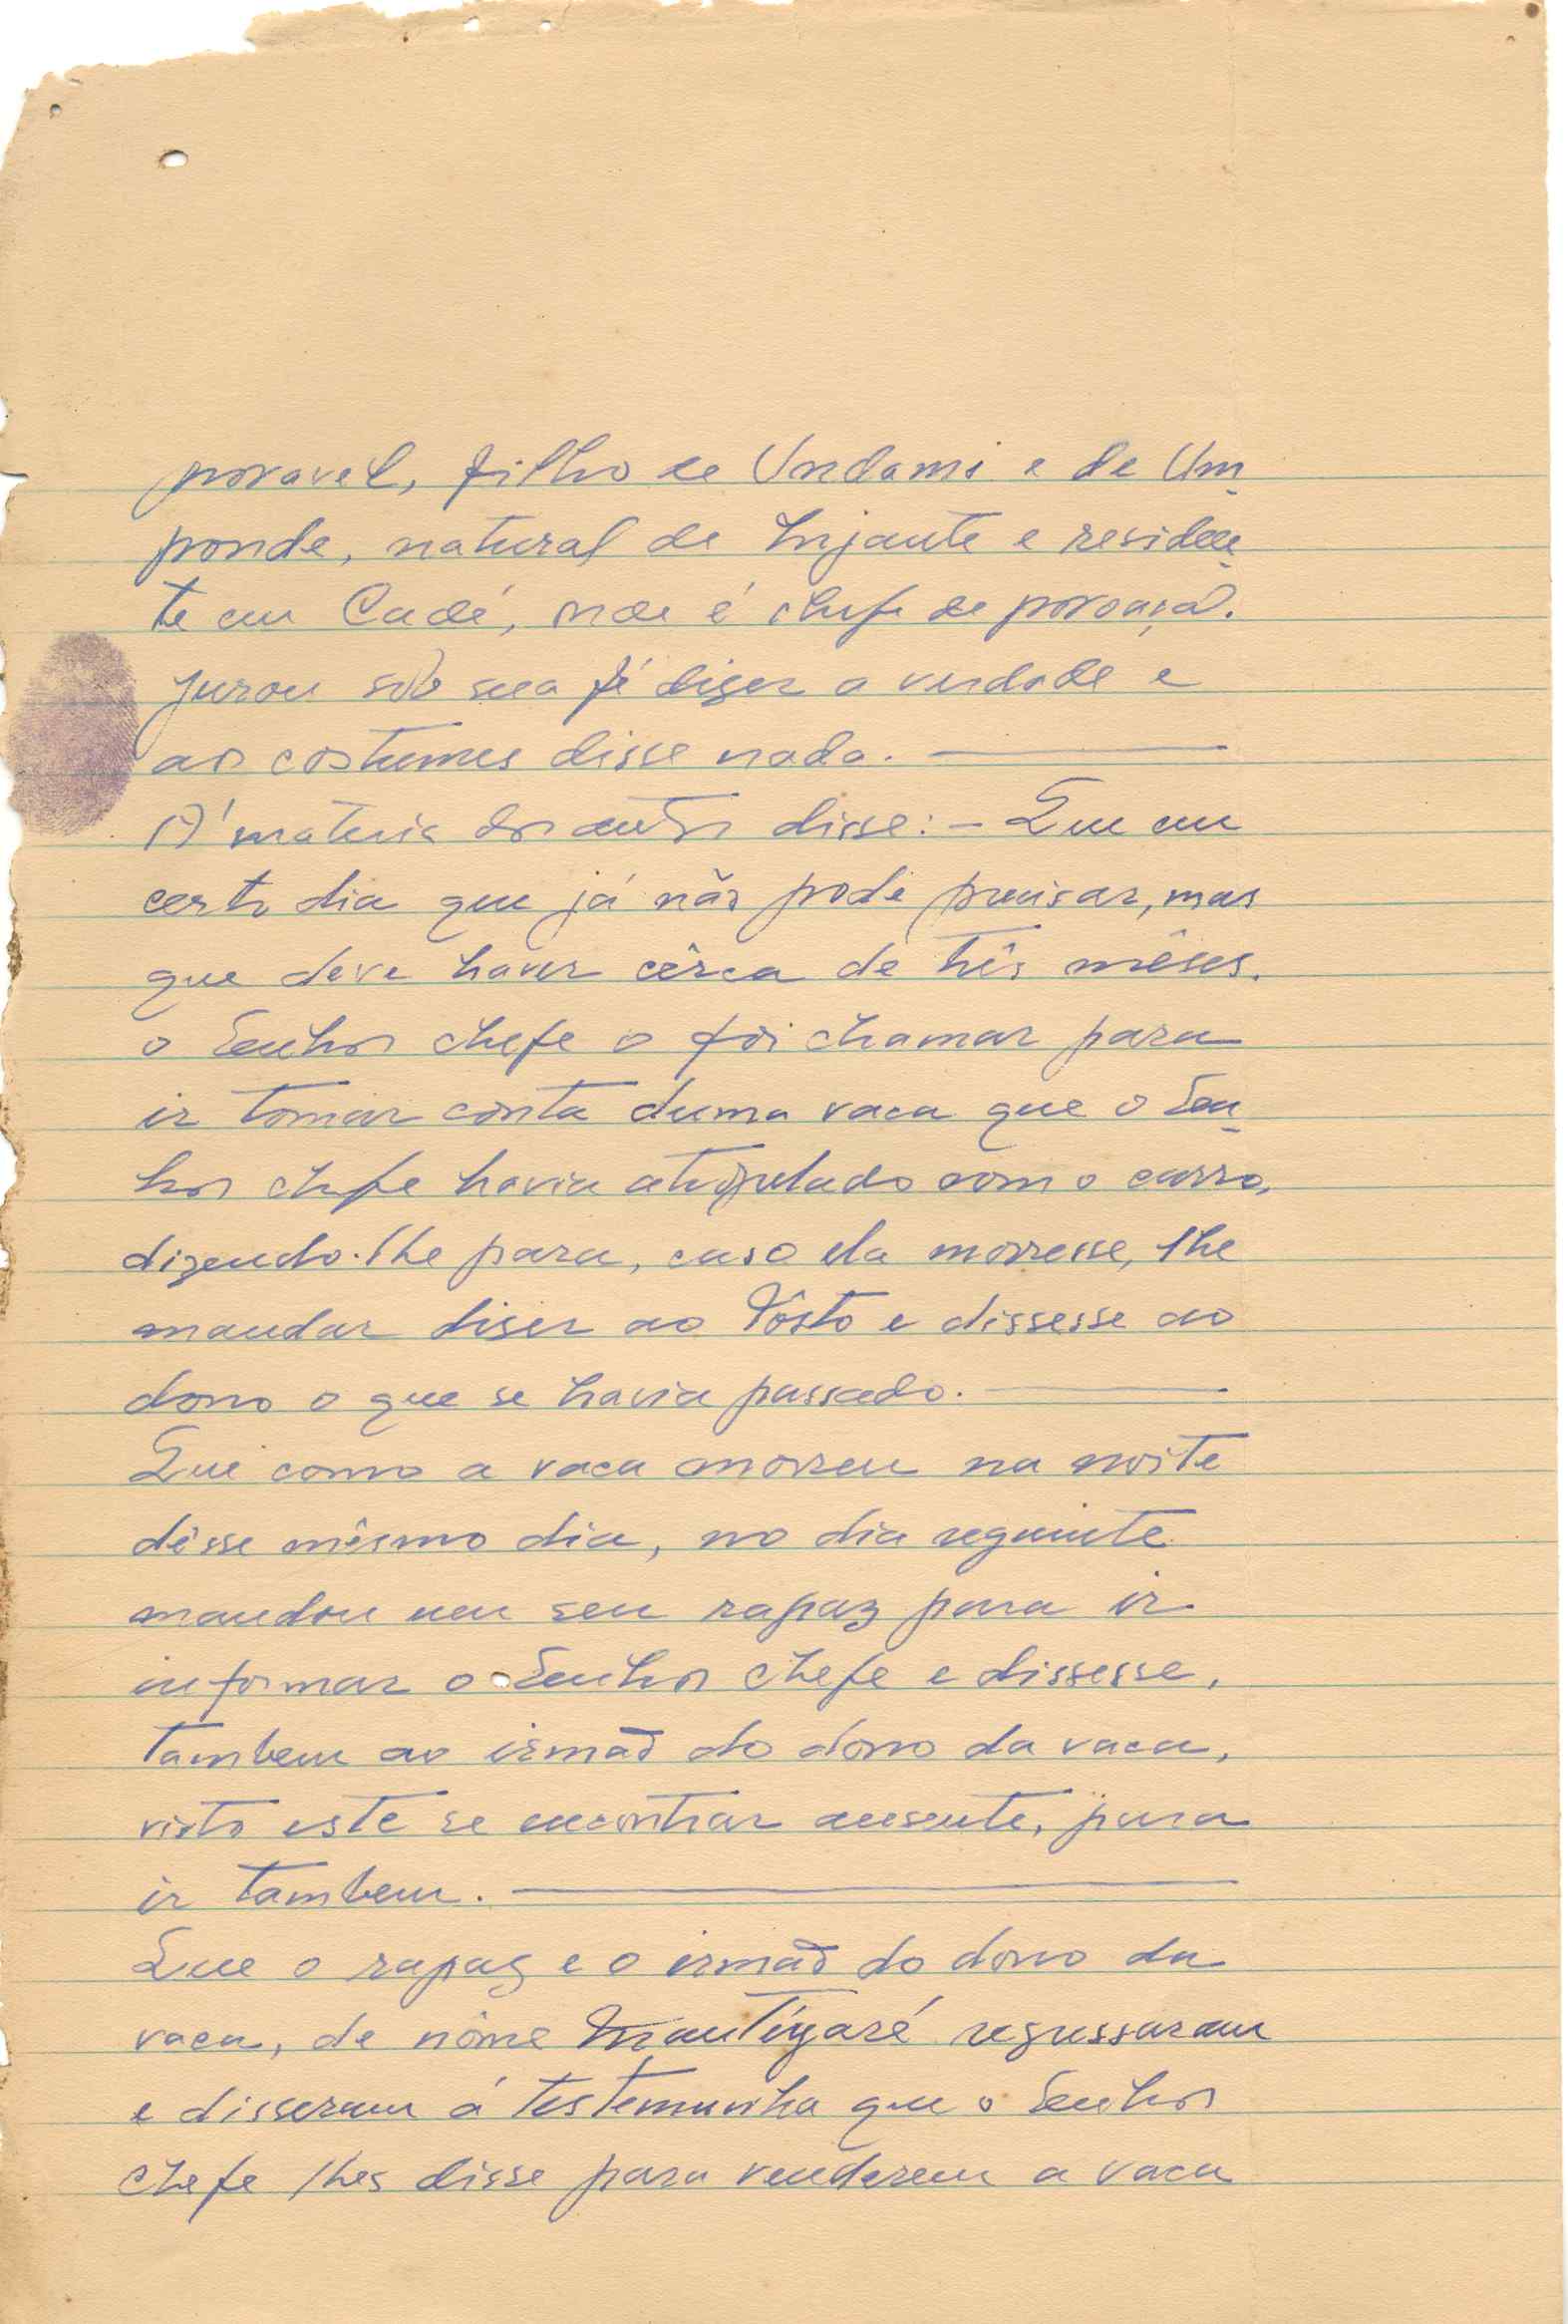 provavel, filho de Undami e de Um
ponde, natural de Injante e residen
te em Cadé, onde é chefe de povoação.
Jurou sob sua fé dizer a verdade e
aos costumes disse nada. ———
Á materia dos autos disse: – Que em
certo dia que já não pode precisar, mas
que deve haver cêrca de três mêses.
o Senhor chefe o foi chamar para
ir tomar conta duma vaca que o Sen
hor chefe havia atropelado com o carro,
dizendo-lhe para, caso ela morresse, lhe
mandar diser ao Pôsto e dissesse ao
dono o que se havia passado. ———
Que como a vaca morreu na noite
dêsse mêsmo dia, no dia seguinte
mandou um seu rapaz para ir
informar o Senhor chefe e dissesse,
tambem ao irmão do dono da vaca,
visto este se encontrar ausente, para
ir tambem. ———
Que o rapaz e o irmão do dono da
vaca, de nôme regressaram
e disseram á testemunha que o Senhor
chefe lhes disse para venderem a vaca